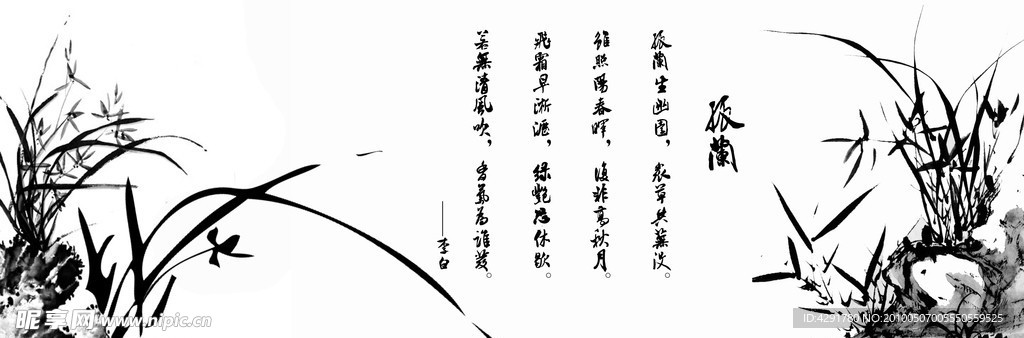 孤蘭
孤蘭生幽園，衆草共蕪没。
雖照陽春暉，復非高秋月。
飛霜早淅瀝，綠艷恐休歇。
若無清風吹，香氣為誰發。
——李白
昵享网 www.nipic.cn
ID:4291780 NO:20100507005550559525